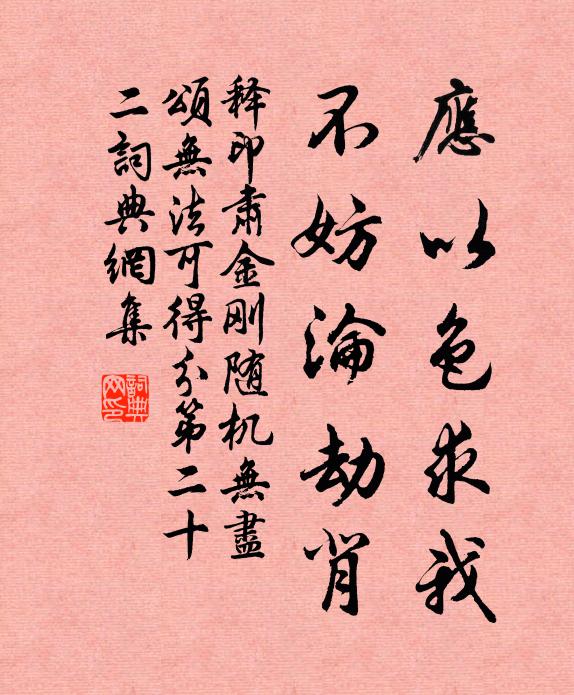 應以色求我
不妨淪劫背
释印肅金刚随机無盡
頌無法可得分第二十
二詞典網集
詞典
网印